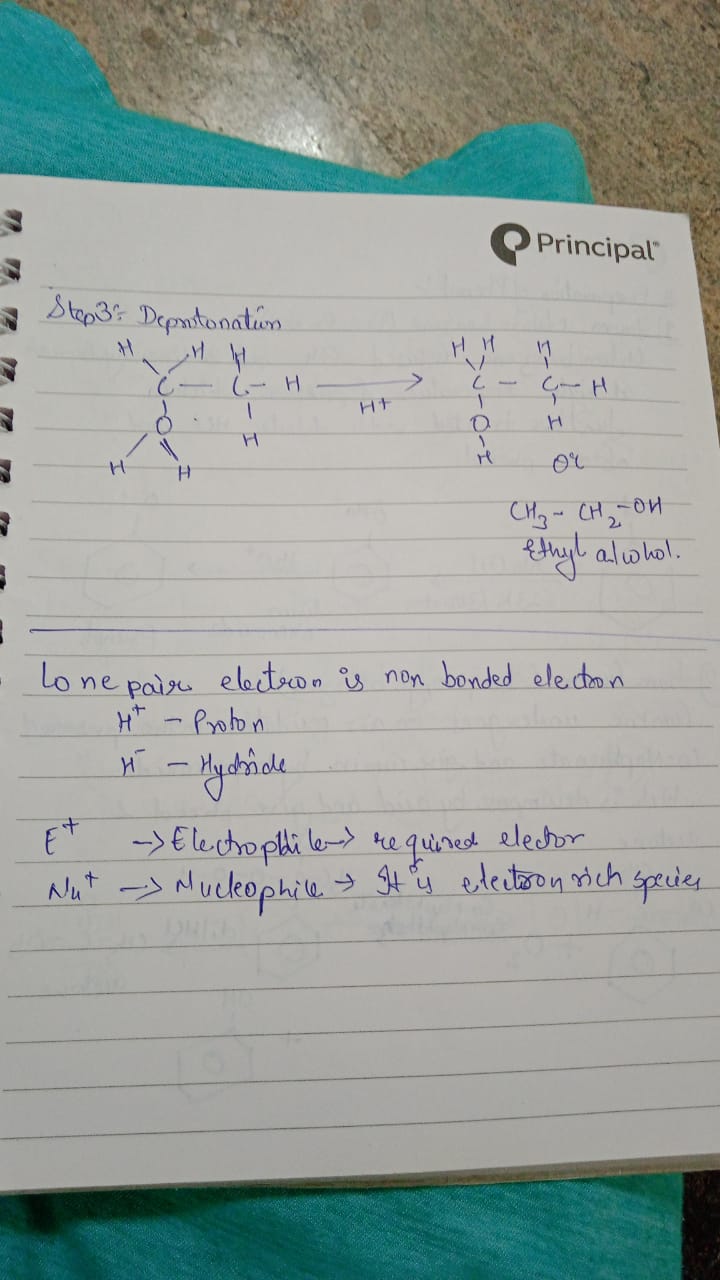 Principal
Step 3: Deprotonation
H H H H H H
C – C – H ⟶ C – C – H
H+
O H O H
H H H Or
CH3 - CH2 - OH
Ethyl alcohol.
Lone pair electron is non bonded electron
H+ – Proton
H- – Hydride
E+ → Electrophile → required elector
Nu+ → Nucleophile → It is electron rich species